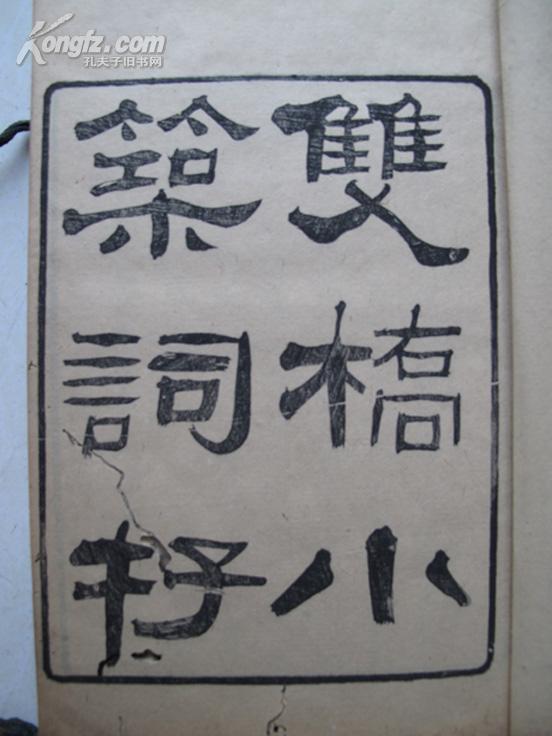 Kongfz.com
孔夫子旧书网
雙橋小
築詞存